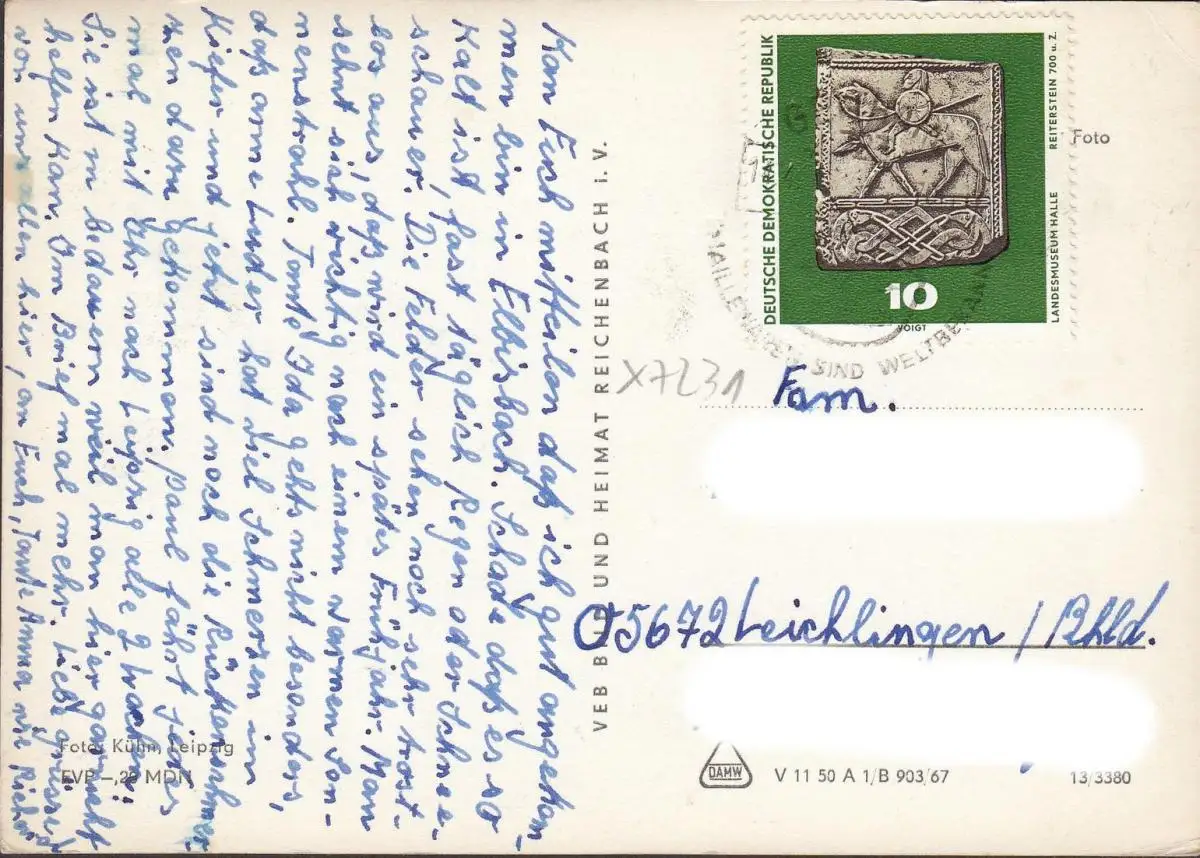 Kan Euch mitteilen daß ich gut angekom-
men bin in Elbisbach. Schade daß es so
Kalt ist, fast tägich Regen oder Schnee-
schauer. Die Felder sehen noch sehr trost-
los aus, daß wird ein spätes Frühjahr. Man
sehnt sich richtig nach einem warmen Son-
nenstrahl. Tante Ida gehts nicht besonders,
daß arme Luder hat viel Schmerzen im
Kiefer und jetzt sind noch die Rückenschmer-
zen dazu gekommen. Paul fährt jedes
mal mit Ihr nach Leipzig alle 2 Wochen.
Sie ist zu bedauern weil man hier gar nicht
helfen kan. Im Brief mal mehr. Liebe Grüsse
von uns allen hier, an Euch, Tante Anna wie Richard
VEB BILD UND HEIMAT REICHENBACH i. V.
Foto: Kühn, Leipzig
EVP –,25 MDN
DEUTSCHE DEMOKRATISCHE REPUBLIK
REITERSTEIN 700 u. Z.
LANDESMUSEUM HALLE
10
VOIGT
Foto
SIND WELTBEKANN
X7231
Fam.
O5672 Leichlingen / Rhld.
DAMW
V 11 50 A 1/B 903/67
13/3380